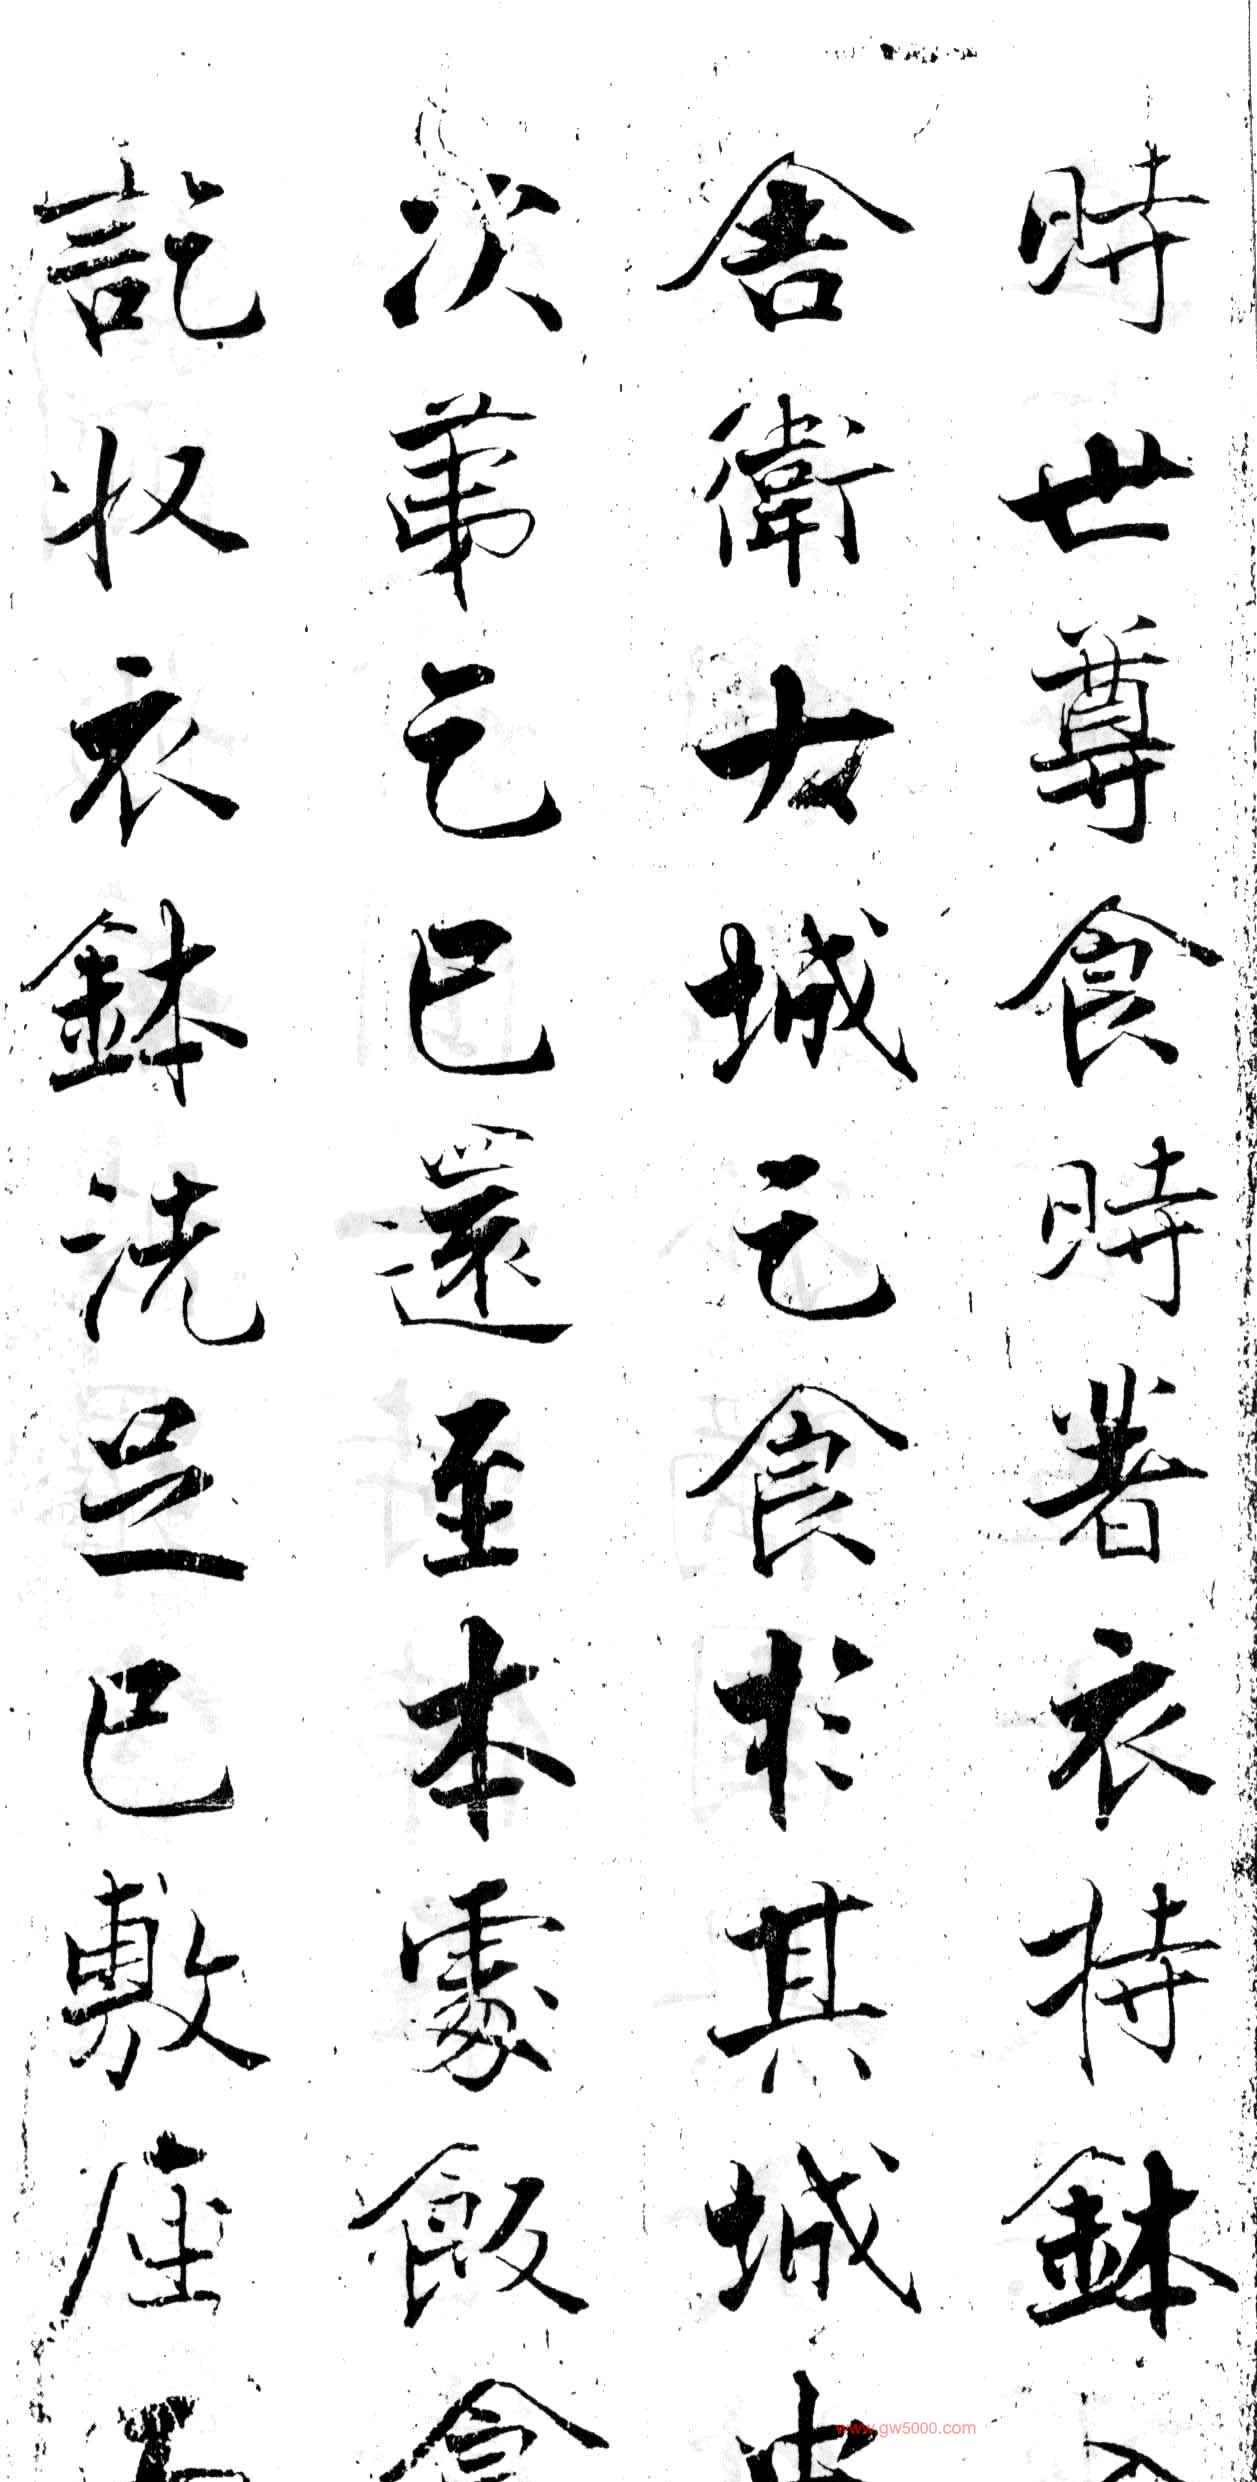 時世尊食時著衣持鉢入
舍衛大城乞食於其城中
次苐乞已還至本處飯食
訖収衣鉢洗足已敷座而
www.gw5000.com